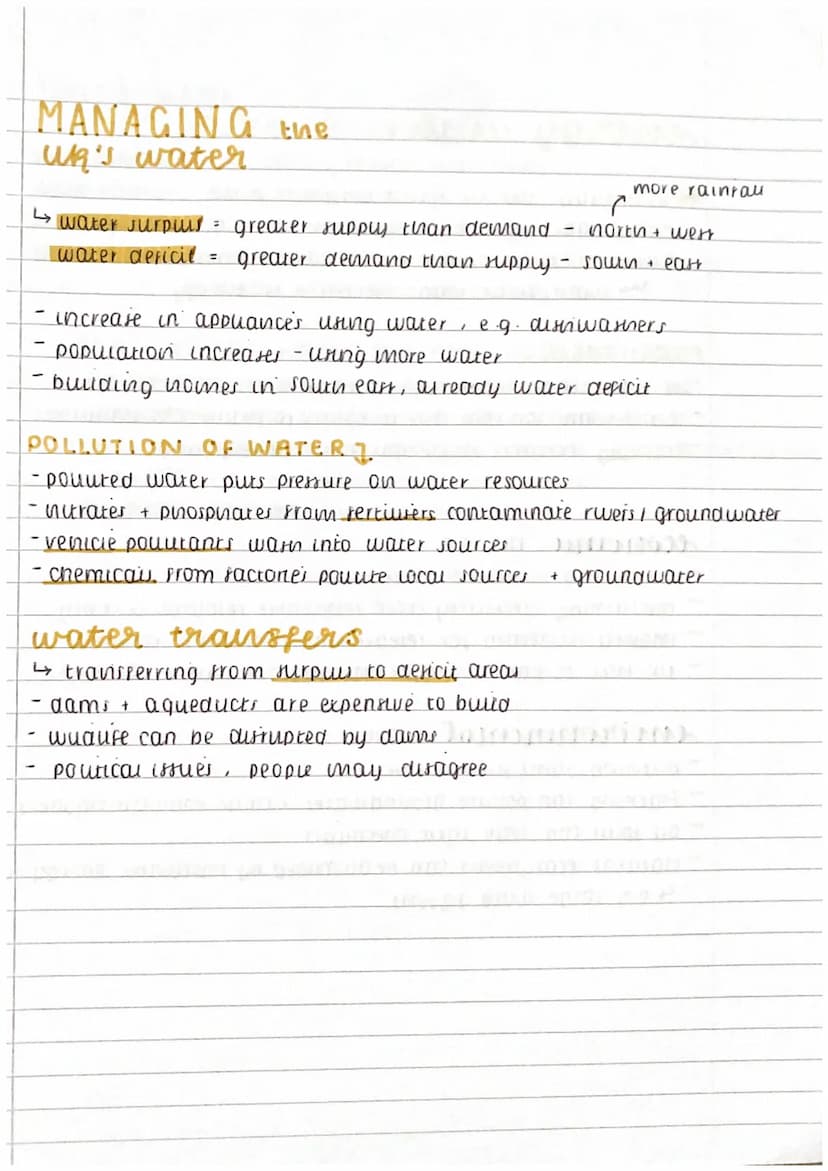 MANAGING the
UK's water
more rainfall
↳ water surplus = greater supply than demand - north + west
water deficit = greater demand than supply - south + east
- increase in appliances using water, e.g. dishwashers
- population increases - using more water
- building homes in south east, already water deficit
POLLUTION OF WATER
- polluted water puts pressure on water resources
- nitrates + phosphates from fertilisers contaminate rivers / groundwater
- vehicle pollutants wash into water sources
- chemicals from factories pollute local sources + groundwater
water transfers
↳ transferring from surplus to deficit areas
- dams + aqueducts are expensive to build
- wildlife can be disrupted by dams
- political issues, people may disagree